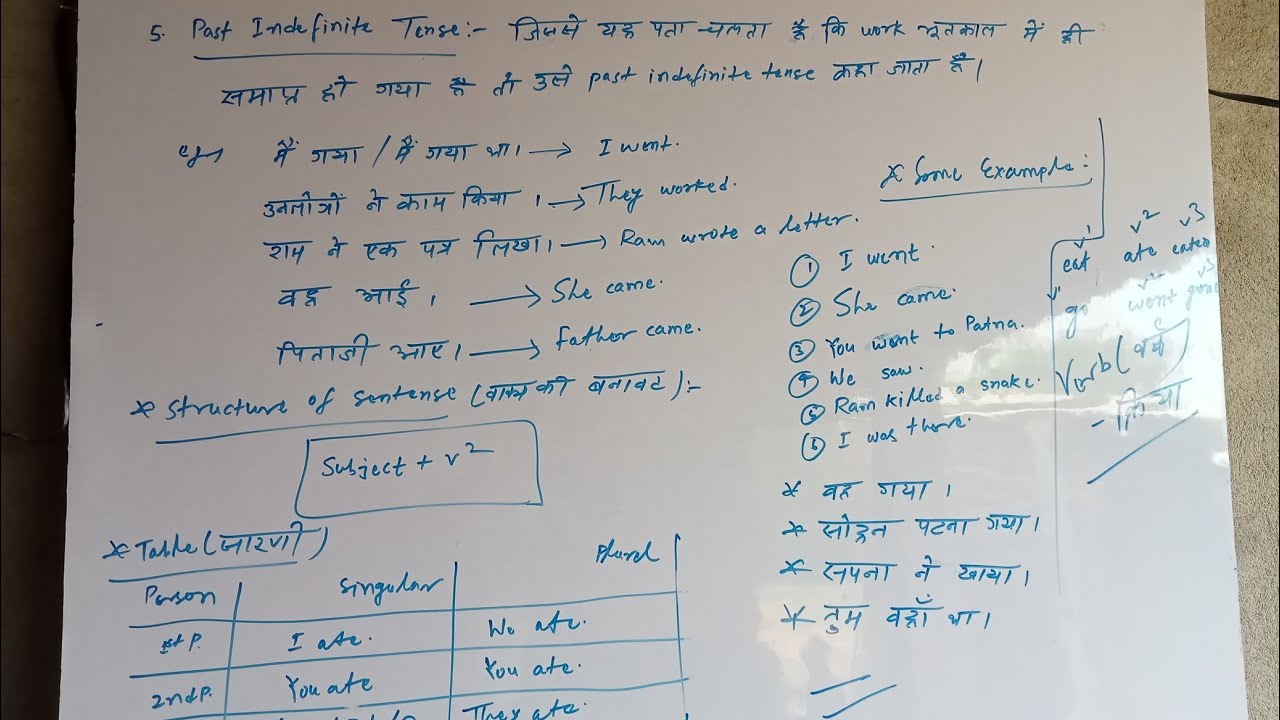 5. Past Indefinite Tense:- जिससे यह पता चलता है कि work भूतकाल में ही
समाप्त हो गया है तो उसे past indefinite tense कहा जाता है।
eg→ मैं गया / मैं गया था। → I went.
उनलोगों ने काम किया । → They worked.
राम ने एक पत्र लिखा। → Ram wrote a letter.
वह आई। → She came.
पिताजी आए। → Father came.
* Structure of sentence (वाक्य की बनावट):-
Subject + v²
* Table (सारणी)
Person Singular Plural
1st P. I ate. We ate.
2nd P. You ate You ate.
They ate.
* Some Example:
① I went.
② She came.
③ You went to Patna.
④ We saw.
⑤ Ram killed a snake.
⑥ I was there.
* वह गया ।
* सोहन पटना गया।
* सपना ने खाया।
* तुम वहाँ था।
v¹ v² v³
eat ate eaten
v¹ v² v³
go went gone
Verb (वर्ब)
- क्रिया